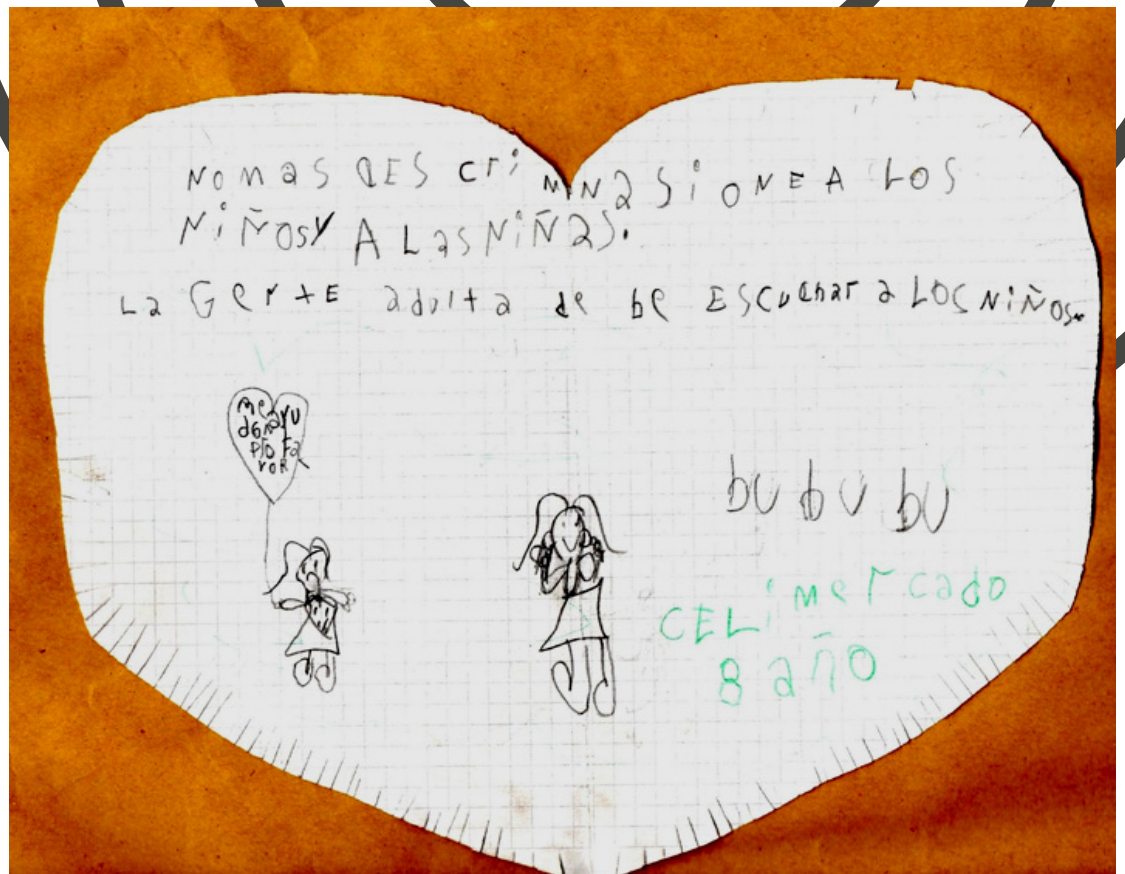 NO mas DES cri minasione A LOS
NiÑOSY A LasNiÑas.
La GeNtE adulta de be ESCuchar a LOS NiÑOS.
me ayu
dGN
PRO Fa
VOR
bu bu bu
CELi mercado
8 año